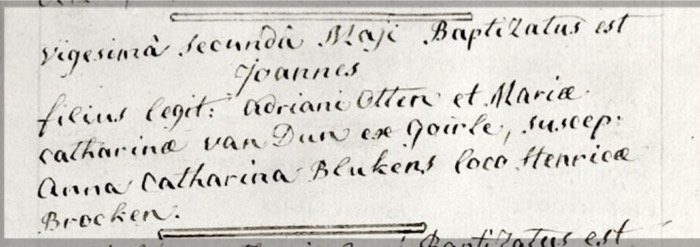 vigesimâ secundâ Maji Baptizatus est
Joannes
filius legit: Adriani Otten et Mariæ
catharinæ van Dun ex Goirle, suscep:
Anna Catharina Blukens loco Henricæ
Brocken.
Baptizatus est